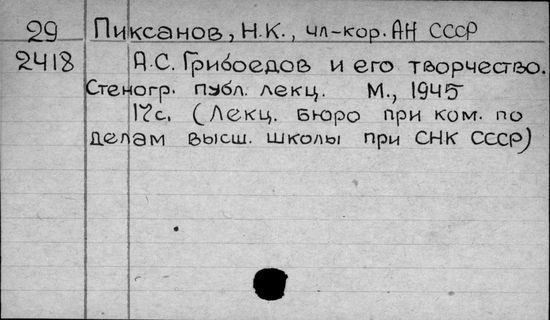 29 Пиксанов, Н.К., чл-кор. АН СССР
2418 А.С. Грибоедов и его творчество.
Стеногр. публ. лекц. М., 1945
17с. (Лекц. бюро при ком. по
делам высш. школы при СНК СССР)